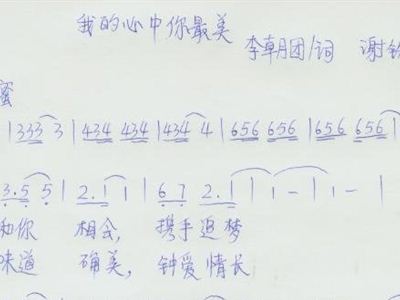 我的心中你最美
李朝团/词 谢
蜜
| 333 3 | 434 434 | 434 4 | 656 656 | 656 656 |
3.5 5 | 2.1 1 | 6 7 2.1 | 1 - | 1 - |
和你 相会, 携手追梦
味道 确美, 钟爱情长